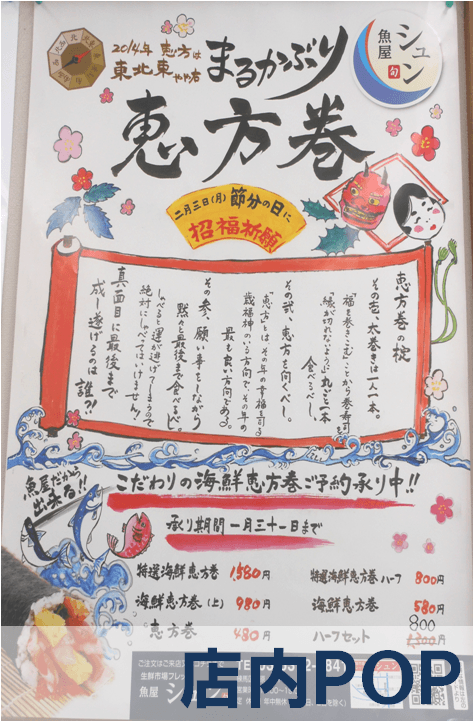 2014年 恵方は
東北東やや右
まるかぶり
魚屋
シュン
旬
恵方巻
二月三日(月) 節分の日に
招福祈願
恵方巻の掟
その壱、太巻きは一人一本。
「福を巻きこむ」ことから巻寿司を
「縁が切れないように」丸ごと一本
食べるべし。
その弐、恵方を向くべし。
「恵方」とは、その年の幸福を司る
歳福神のいる方向で、その年の
最も良い方向である。
その参、願い事をしながら
黙々と最後まで食べるべし。
しゃべると運が逃げてしまうので
絶対にしゃべってはいけません!
真面目に最後まで
成し遂げるのは
誰だ?!
魚屋だから
出来る!!
こだわりの海鮮恵方巻ご予約承り中!!
承り期間 一月三十一日まで
特選海鮮恵方巻 1,580円
特選海鮮恵方巻ハーフ 800円
海鮮恵方巻(上) 980円
海鮮恵方巻 580円
恵方巻 480円
ハーフセット 800
1,300円
ご注文はご来店
生鮮市場
魚屋
店内POP